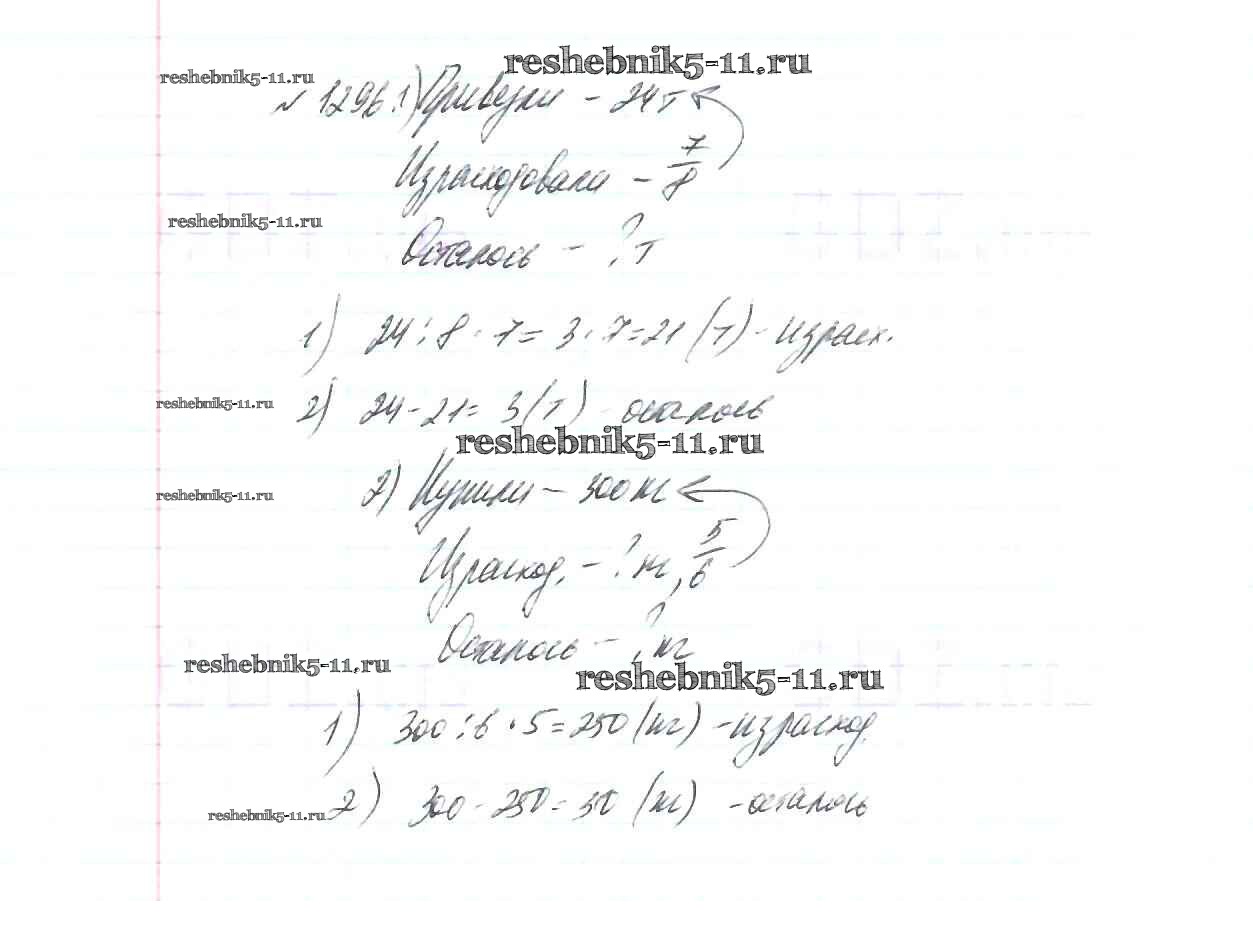 reshebnik5-11.ru
reshebnik5-11.ru
№ 1296. 1) Привезли - 24 т
Израсходовали - 7/8
reshebnik5-11.ru
Осталось - ? т
1) 24 : 8 · 7 = 3 · 7 = 21 (т) - израсх.
reshebnik5-11.ru
2) 24 - 21 = 3 (т) осталось
reshebnik5-11.ru
2) Купили - 300 кг
reshebnik5-11.ru
Израсход. - ? кг, 5/6
Осталось - ? кг
reshebnik5-11.ru
reshebnik5-11.ru
1) 300 : 6 · 5 = 250 (кг) - израсход.
2) 300 - 250 = 50 (кг) - осталось
reshebnik5-11.ru